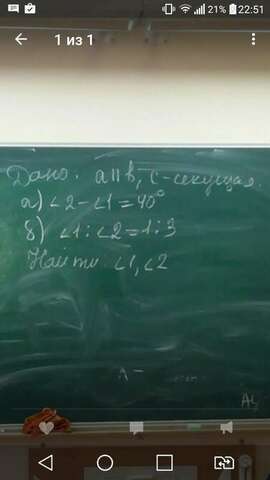 21% 22:51
1 из 1
Дано: a || b, c - секущая.
а) ∠2 - ∠1 = 40°
б) ∠1 : ∠2 = 1 : 3
Найти ∠1, ∠2